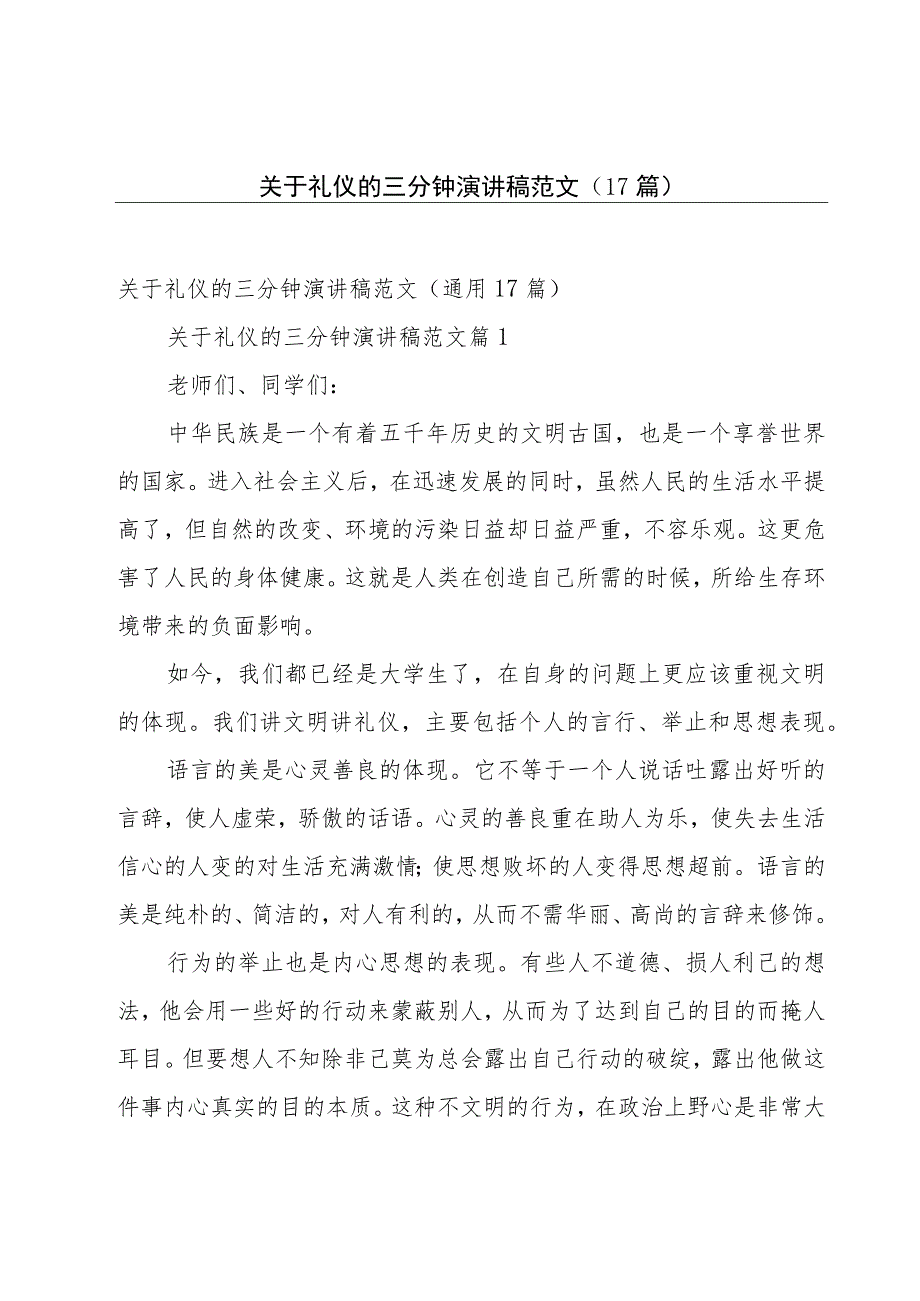 关于礼仪的三分钟演讲稿范文（17 篇）
关于礼仪的三分钟演讲稿范文（通用 17 篇）
关于礼仪的三分钟演讲稿范文篇 1
老师们、同学们：
中华民族是一个有着五千年历史的文明古国，也是一个享誉世界
的国家。进入社会主义后，在迅速发展的同时，虽然人民的生活水平提
高了，但自然的改变、环境的污染日益却日益严重，不容乐观。这更危
害了人民的身体健康。这就是人类在创造自己所需的时候，所给生存环
境带来的负面影响。
如今，我们都已经是大学生了，在自身的问题上更应该重视文明
的体现。我们讲文明讲礼仪，主要包括个人的言行、举止和思想表现。
语言的美是心灵善良的体现。它不等于一个人说话吐露出好听的
言辞，使人虚荣，骄傲的话语。心灵的善良重在助人为乐，使失去生活
信心的人变的对生活充满激情；使思想败坏的人变得思想超前。语言的
美是纯朴的、简洁的，对人有利的，从而不需华丽、高尚的言辞来修饰。
行为的举止也是内心思想的表现。有些人不道德、损人利己的想
法，他会用一些好的行动来蒙蔽别人，从而为了达到自己的目的而掩人
耳目。但要想人不知除非己莫为总会露出自己行动的破绽，露出他做这
件事内心真实的目的本质。这种不文明的行为，在政治上野心是非常大